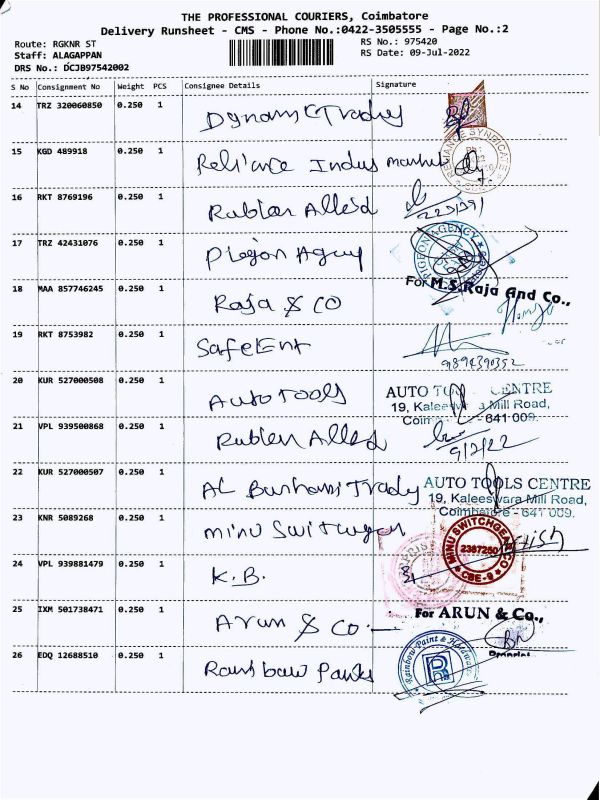 THE PROFESSIONAL COURIERS, Coimbatore
Delivery Runsheet - CMS - Phone No.:0422-3505555 - Page No.:2
Route: RGKNR ST
RS No.: 975420
Staff: ALAGAPPAN
RS Date: 09-Jul-2022
DRS No.: DCJB97542002
S No Consignment No Weight PCS Consignee Details Signature
14 TRZ 320060850 0.250 1
15 KGD 489918 0.250 1 Reliance Indus market
16 RKT 8769196 0.250 1 Rublen Alled
17 TRZ 42431076 0.250 1 PIGEON AGENCY
18 MAA 857746245 0.250 1 Raja & CO
For M.S.Raja And Co.,
19 RKT 8753982 0.250 1 SafeEnt
9894390352
20 KUR 527000508 0.250 1 AUTO TOOLS
AUTO CENTRE
19, Mill Road,
641 009.
21 VPL 939500868 0.250 1 Rublen Alled
9/7/22
22 KUR 527000507 0.250 1 AL Burhani Trady
AUTO TOOLS CENTRE
19, Kaleeswara Mill Road,
Coimbatore - 641 009.
23 KNR 5089268 0.250 1 minu Switchgear
MINU SWITCHGEAR CO
2387250
CBE-9
24 VPL 939881479 0.250 1 K.B.
25 IXM 501738471 0.250 1 Arun & Co
For ARUN & Co.,
26 EDQ 12688510 0.250 1 Rainbow Paints
Rainbow Paint & Hardwares